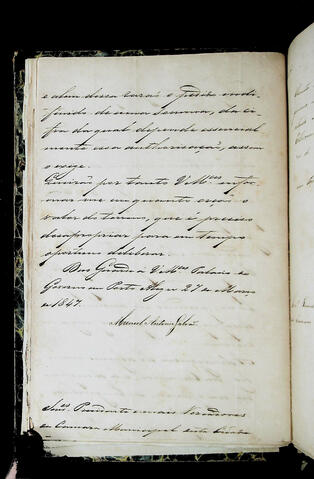 e alem dessa rasaõ o pedido inde-
finido de uma somma, da ci-
fra da qual depende essencial
mente essa authorisaçaõ, assim
o exige.
Queiraõ por tanto V. M.ces infor
mar me em quanto orçaõ o
valor do terreno, que é preciso
desapropriar para em tempo
opportuno deliberar.
Deos Guarde a V. M.ces Palacio do
Governo em Porto Alegre 27 de Março
de 1847.
Manoel Antonio Galvaõ
Snr.es Presidente e mais Vereadores
da Camara Municipal desta Cidade